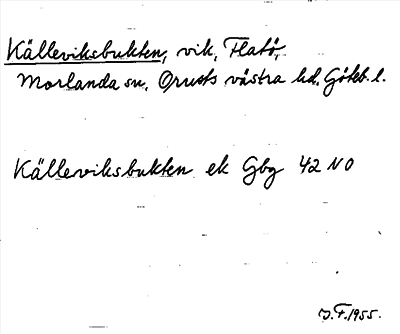 Källeviksbukten, vik, Flatö,
Morlanda sn, Orusts västra hd. Göteb. l.
Källeviksbukten ek Gbg 42 NO
J.F. 1955.